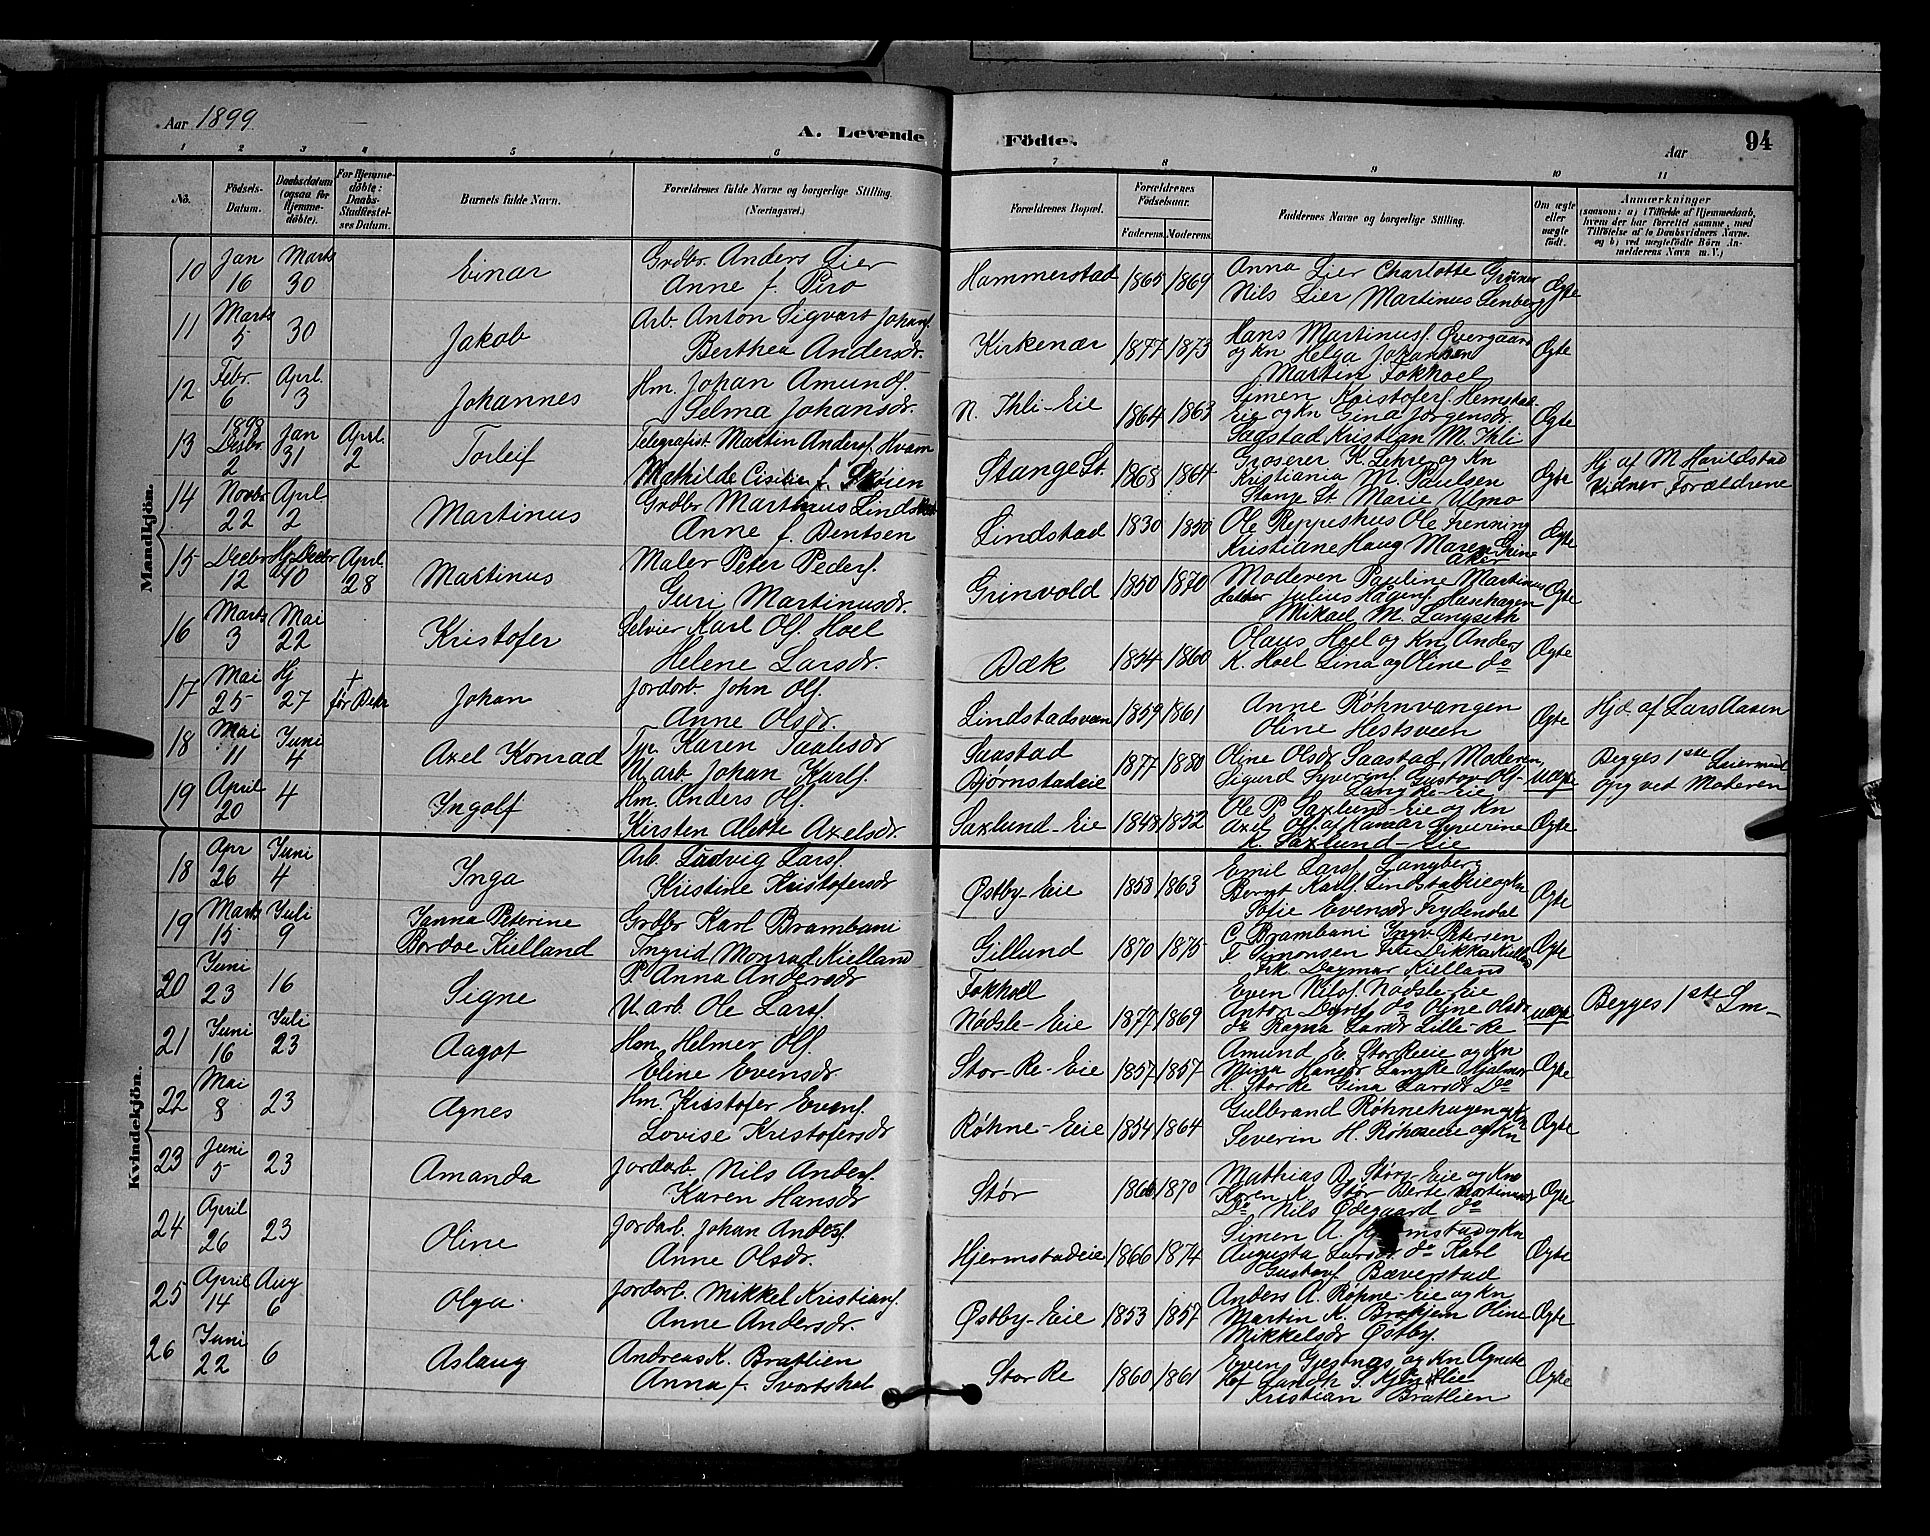 Aar 1899
A. Levende
Födte.
Aar
94
1 2 3 4 5 6 7 8 9 10 11
No.
Födsels-Datum.
Daabsdatum (ogsaa for Hjemme-døbte).
For Hjemme-døbte: Daabs-Stadfæstel-ses Datum.
Barnets fulde Navn.
Forældrenes fulde Navne og borgerlige Stilling.
(Næringsvei.)
Forældrenes Bopæl.
Forældrenes Födselsaar.
Faderens. Moderens.
Faddernes Navne og borgerlige Stilling.
Om ægte eller uægte født.
Anmærkninger
(saasom: a) i Tilfælde af Hjemmedaab, hvem der har forrettet samme, med Tilføielse af to Daabsvidners Navne, og b) ved uægtefødte Børn An-melderens Navn m. V.)
Mandkjön.
10 Jan 16 Marts 30 Einar Grdbr. Anders Lier
Anne f. Piro Hammerstad 1865 1869 Anna Lier Charlotte Grøner
Nils Lier Martinus Lenberg Ægte
11 Marts 5 30 Jakob Arb. Anton Sigvart Johans.
Berthea Andersdr. Kirkenær 1877 1873 Hans Martinus. Øvergaard
og Kn Helga Johansen
Martin Fokhoel Ægte
12 Febr. 6 April 3 Johannes Hm. Johan Amunds.
Selma Johansdr. N. Ihli-Eie 1864 1863 Simen Kristofers. Hemstad-
Eie og Kn Gina Jørgensdr.
Sagstad Kristian M. Ihli Ægte
13 1898 Decbr. 2 Jan 31 April 2 Torleif Telegrafist Martin Anders. Hvam
Mathilde Cisilie f. Skøien Stange St. 1868 1864 Groserer K. Lehre og Kn
Kristiania M. Paulsen
Stange St Marie Ulmo Ægte Hj af M Harildstad
Vidner Forældrene
14 Novbr 22 April 2 Martinus Grdbr Martinus Lindstad
Anne f. Bentsen Lindstad 1830 1850 Ole Reppeshus Ole Frenning
Kristiane Haug Maren Grine
Aker Ægte
15 Decbr 12 Hj Decbr April 28 Martinus Maler Peter Peders.
Guri Martinusdr. Grinvold 1850 1870 Moderen Pauline Martinus
datter Julius Hagens. Hanhagen
Mikael M. Langseth Ægte
16 Marts 3 Mai 22 Kristofer Selvier Karl Ols. Hoel
Helene Larsdr. Bæk 1854 1860 Olaus Hoel og Kn Anders
K. Hoel Lina og Oline do Ægte
17 Mai 25 Hj 27 † før Bekr Johan Jordarb. John Ols.
Anne Olsdr. Lindstadsveen 1859 1861 Anne Røhnvangen
Oline Hestsveen Ægte Hjd. af Lars Aasen
18 Mai 11 Juni 4 Axel Konrad Tp. Karen Paulsdr
U. arb. Johan Karls. Saastad
Bjørnstadeie 1877 1880 Oline Olsdr Saastad, Moderen,
Sigurd Syverens. Gustav Ols-
Langke-Eie uægte Begges 1ste Leiermaal
opg ved Moderen
19 April 20 4 Ingolf Hm. Anders Ols.
Kirsten Alette Axelsdr. Saxlund-Eie 1848 1852 Ole P. Saxlund-Eie og Kn
Axel Ols. af Hamar Syverine
K. Saxlund-Eie Ægte
Kvindekjön.
18 Apr 26 Juni 4 Inga Arb. Ludvig Lars.
Kristine Kristofersdr Østby-Eie 1858 1863 Emil Lars. Langberg
Bernt Karls. Lindstadeie og Kn
Sofie Evensdr Frydendal Ægte
19 Marts 15 Juli 9 Janna Peterine
Bordoe Kielland Grdbr Karl Brambani
Ingrid Monrad Kielland Gillund 1870 1875 C. Brambani Ingv. Petersen
F. Simonsen Frk Dikka Kielland
Frk. Dagmar Kielland Ægte
20 Juni 23 16 Signe P. Anna Andersdr
U. arb. Ole Lars. Fokhoel
Nødsle-Eie 1877 1869 Even Nils. Nødsle-Eie
Anton Davids. do Oline Olsdr
do Ragna Larsdr Lille-Re uægte Begges 1ste Lm-
21 Juni 16 Juli 23 Aagot Hm. Helmer Ols.
Eline Evensdr Stor-Re-Eie 1857 1857 Amund E. Storreeie og Kn
Mina Hansdr Langke Hjalmar
H. Storre Gina Larsdr Do Ægte
22 Mai 8 23 Agnes Hm. Kristofer Evens.
Lovise Kristofersdr Røhne-Eie 1854 1864 Gulbrand Røhnehagen og Kn
Severin H. Røhneeie og Kn Ægte
23 Juni 5 23 Amanda Jordarb. Nils Anders.
Karen Hansdr Stør 1866 1870 Mathias D. Støre-Eie og Kn
Karen K. Stør Berte Martinusdr
Do Nils Ødegaard do Ægte
24 April 26 23 Oline Jordarb. Johan Anders.
Anne Olsdr. Hjermstadeie 1866 1874 Simen A. Hjermstad og Kn
Augusta Larsdr. do Karl
Gustavs. Bæverstad Ægte
25 April 14 Aug 6 Olga Jordarb. Mikkel Kristians.
Anne Andersdr. Østby-Eie 1853 1857 Anders A. Røhne-Eie og Kn
Martin K. Brakjem Oline
Mikkelsdr Østby. Ægte
26 Juni 22 6 Aslaug Andreas K. Bratlien
Anna f. Svortshol Stor Re 1860 1861 Even Gjestnas og Kn Agnete
Kristian Bratlien Ægte